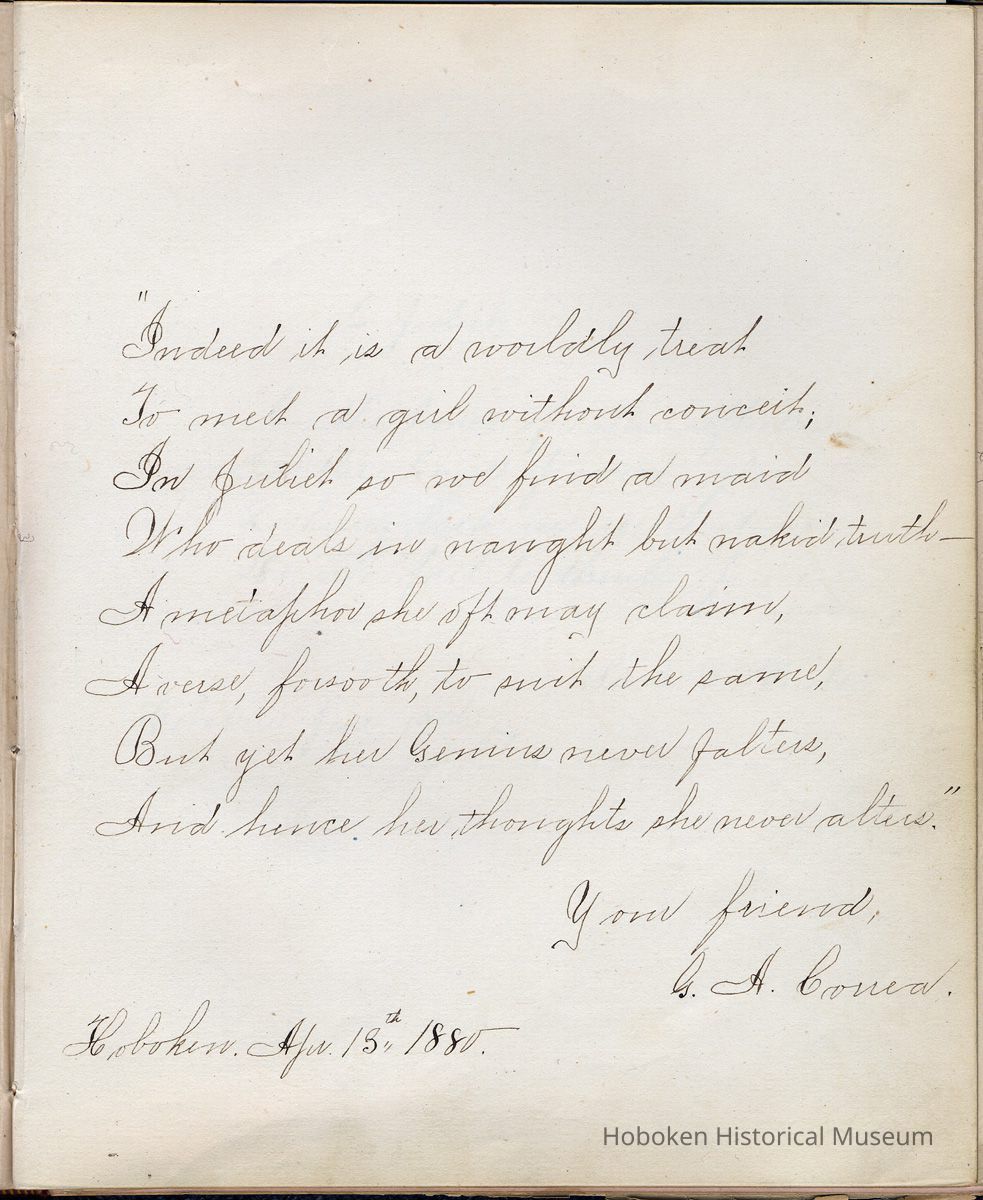 "Indeed it is a worldly treat
To meet a girl without conceit;
In Juliet so we find a maid
Who deals in naught but naked truth—
A metaphor she oft may claim,
A verse, forsooth, to suit the same,
But yet her Genius never falters,
And hence her thoughts she never alters."
Your friend,
G. A. Correa.
Hoboken. Apr. 13th 1880.
Hoboken Historical Museum